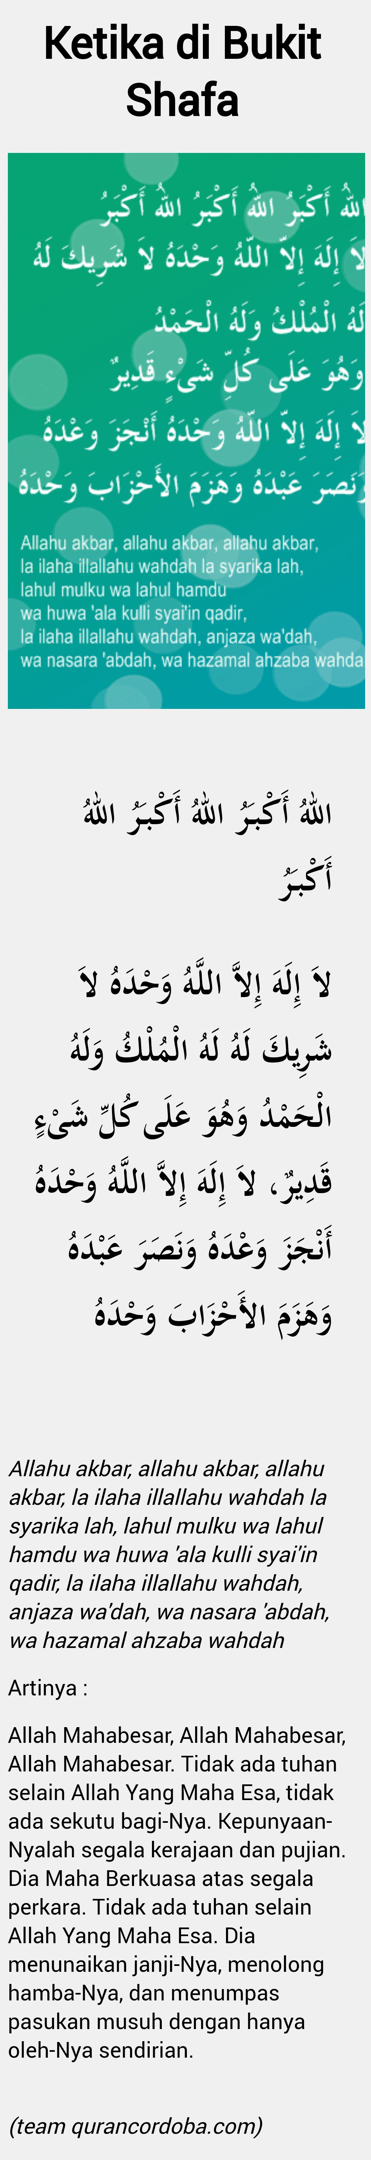 Ketika di Bukit
Shafa
اللهُ أَكْبَرُ اللهُ أَكْبَرُ اللهُ أَكْبَرُ
لاَ إِلَهَ إِلاّ اللّهُ وَحْدَهُ لاَ شَرِيكَ لَهُ
لَهُ الْمُلْكُ وَلَهُ الْحَمْدُ
وَهُوَ عَلَى كُلِّ شَىْءٍ قَدِيرٌ
لاَ إِلَهَ إِلاّ اللّهُ وَحْدَهُ أَنْجَزَ وَعْدَهُ
وَنَصَرَ عَبْدَهُ وَهَزَمَ الأَحْزَابَ وَحْدَهُ
Allahu akbar, allahu akbar, allahu akbar,
la ilaha illallahu wahdah la syarika lah,
lahul mulku wa lahul hamdu
wa huwa 'ala kulli syai'in qadir,
la ilaha illallahu wahdah, anjaza wa'dah,
wa nasara 'abdah, wa hazamal ahzaba wahda
اللهُ أَكْبَرُ اللهُ أَكْبَرُ اللهُ
أَكْبَرُ
لاَ إِلَهَ إِلاَّ اللَّهُ وَحْدَهُ لاَ
شَرِيكَ لَهُ لَهُ الْمُلْكُ وَلَهُ
الْحَمْدُ وَهُوَ عَلَى كُلِّ شَىْءٍ
قَدِيرٌ، لاَ إِلَهَ إِلاَّ اللَّهُ وَحْدَهُ
أَنْجَزَ وَعْدَهُ وَنَصَرَ عَبْدَهُ
وَهَزَمَ الأَحْزَابَ وَحْدَهُ
Allahu akbar, allahu akbar, allahu
akbar, la ilaha illallahu wahdah la
syarika lah, lahul mulku wa lahul
hamdu wa huwa 'ala kulli syai'in
qadir, la ilaha illallahu wahdah,
anjaza wa'dah, wa nasara 'abdah,
wa hazamal ahzaba wahdah
Artinya :
Allah Mahabesar, Allah Mahabesar,
Allah Mahabesar. Tidak ada tuhan
selain Allah Yang Maha Esa, tidak
ada sekutu bagi-Nya. Kepunyaan-
Nyalah segala kerajaan dan pujian.
Dia Maha Berkuasa atas segala
perkara. Tidak ada tuhan selain
Allah Yang Maha Esa. Dia
menunaikan janji-Nya, menolong
hamba-Nya, dan menumpas
pasukan musuh dengan hanya
oleh-Nya sendirian.
(team qurancordoba.com)